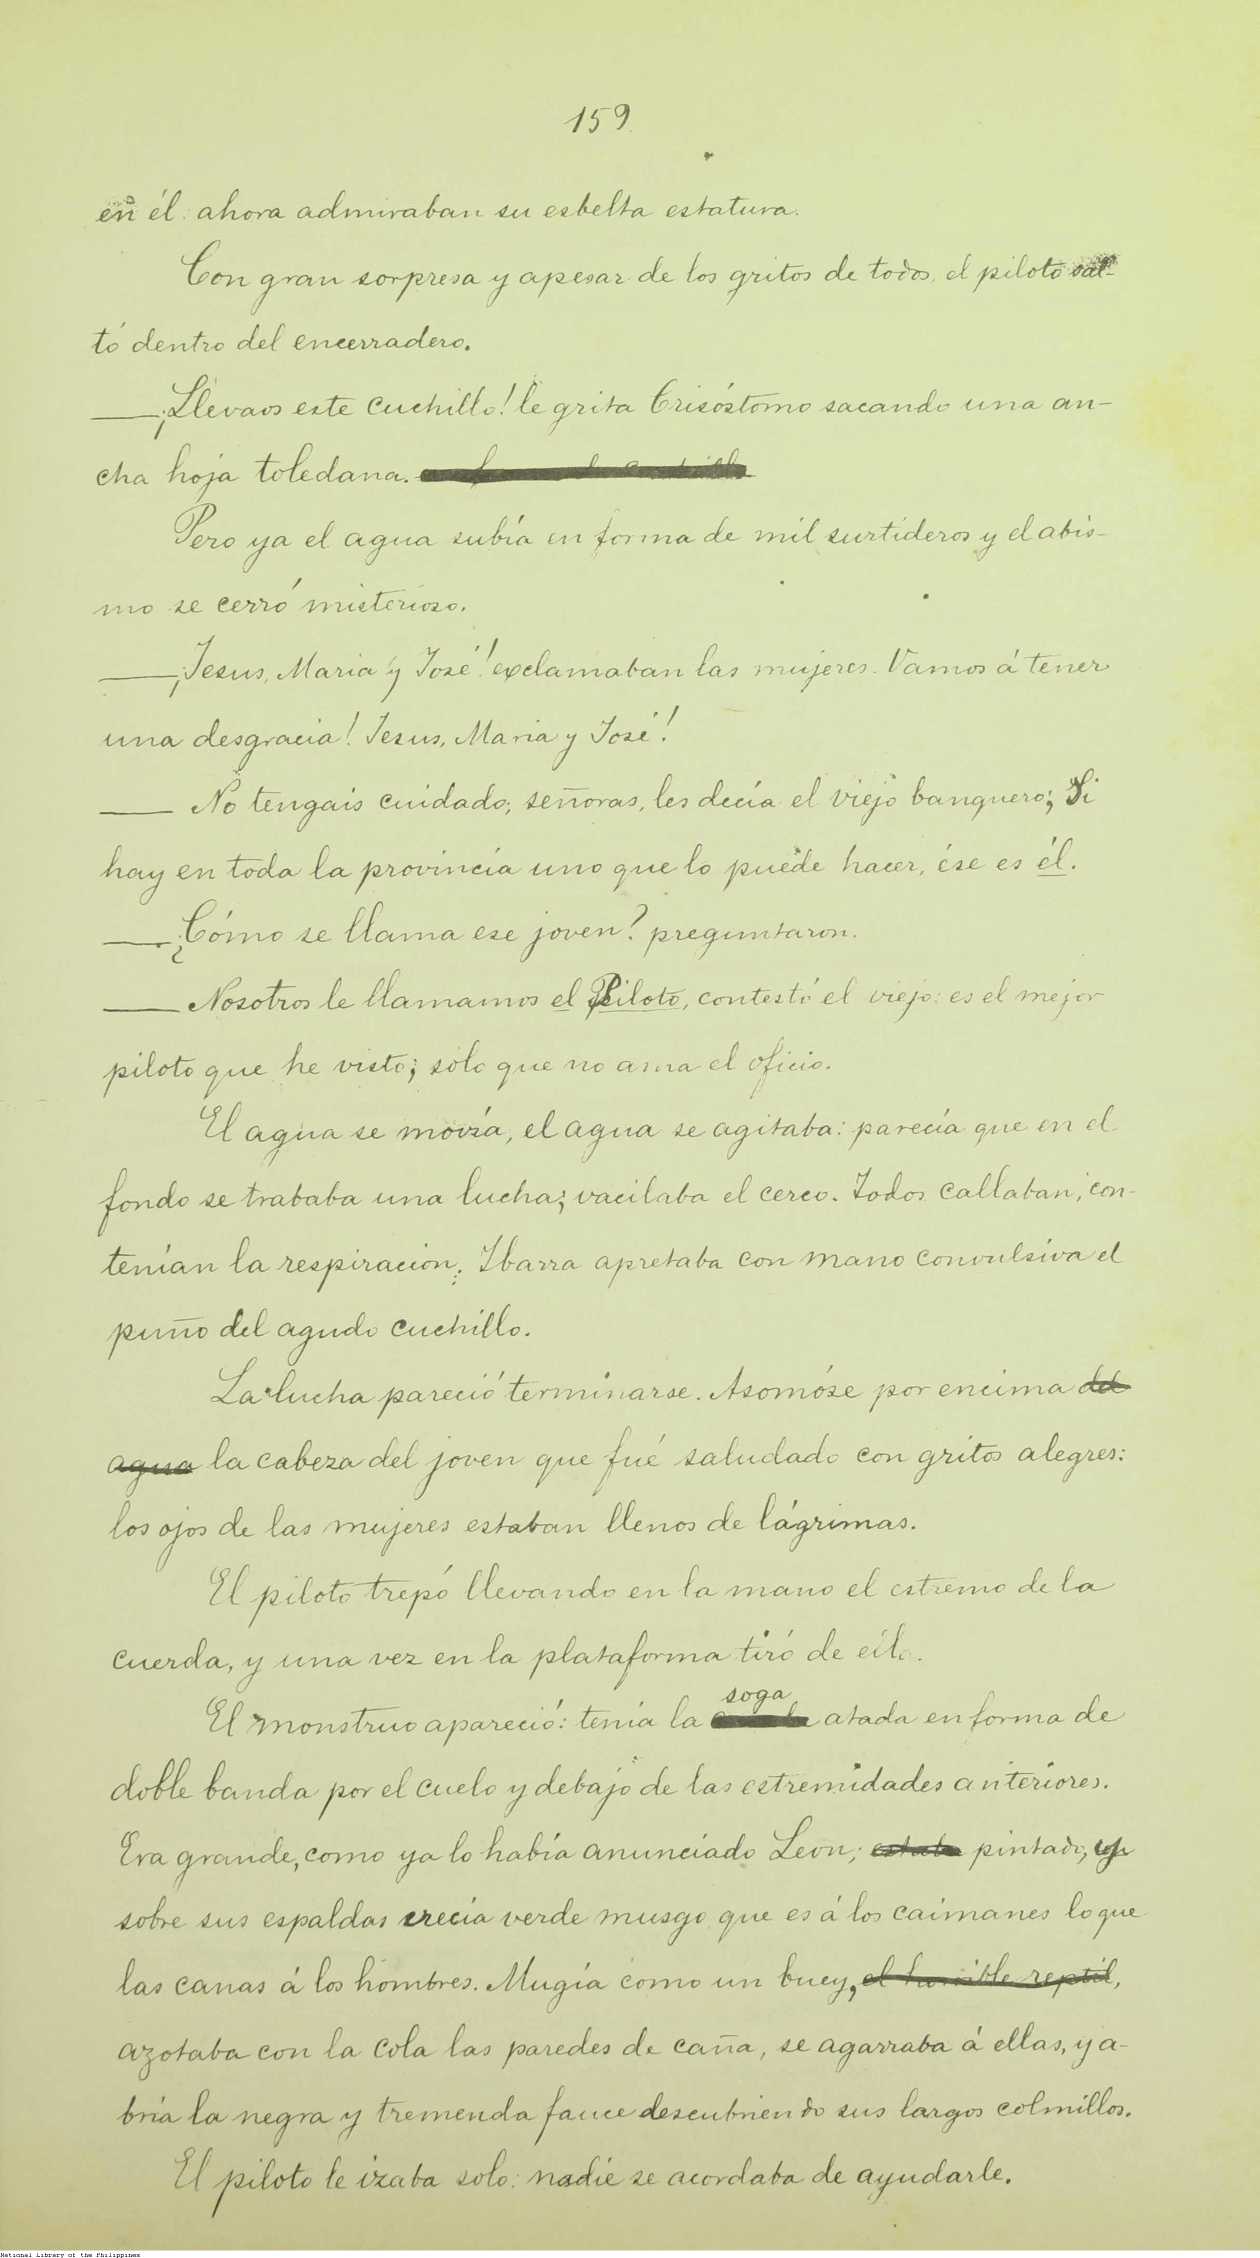 159
en él: ahora admiraban su esbelta estatura.
Con gran sorpresa y apesar de los gritos de todos, el piloto sal-
tó dentro del encerradero.
—¡Llevaos este cuchillo! le grita Crisóstomo sacando una an-
cha hoja toledana.
Pero ya el agua subía en forma de mil surtideros y el abis-
mo se cerró misterioso.
—¡Jesus, Maria y José! exclamaban las mujeres. Vamos á tener
una desgracia! Jesus, Maria y José!
— No tengais cuidado, señoras, les decía el viejo banquero; Si
hay en toda la provincia uno que lo puede hacer, ése es él.
—¿Cómo se llama ese joven? preguntaron.
— Nosotros le llamamos el Piloto, contestó el viejo: es el mejor
piloto que he visto; sólo que no ama el oficio.
El agua se movía, el agua se agitaba: parecía que en el
fondo se trababa una lucha; vacilaba el cerco. Todos callaban, con-
tenían la respiracion; Ibarra apretaba con mano convulsiva el
puño del agudo cuchillo.
La lucha pareció terminarse. Asomóse por encima del
agua la cabeza del joven que fué saludado con gritos alegres:
los ojos de las mujeres estaban llenos de lágrimas.
El piloto trepó llevando en la mano el estremo de la
cuerda, y una vez en la plataforma tiró de ella.
El monstruo apareció: tenía la soga atada en forma de
doble banda por el cuelo y debajo de las estremidades anteriores.
Era grande, como ya lo había anunciado Leon; estaba pintado, y
sobre sus espaldas crecía verde musgo que es á los caimanes lo que
las canas á los hombres. Mugía como un buey, el horrible reptil,
azotaba con la cola las paredes de caña, se agarraba á ellas, y a-
bría la negra y tremenda fauce descubriendo sus largos colmillos.
El piloto le izaba solo: nadie se acordaba de ayudarle.
National Library of the Philippines